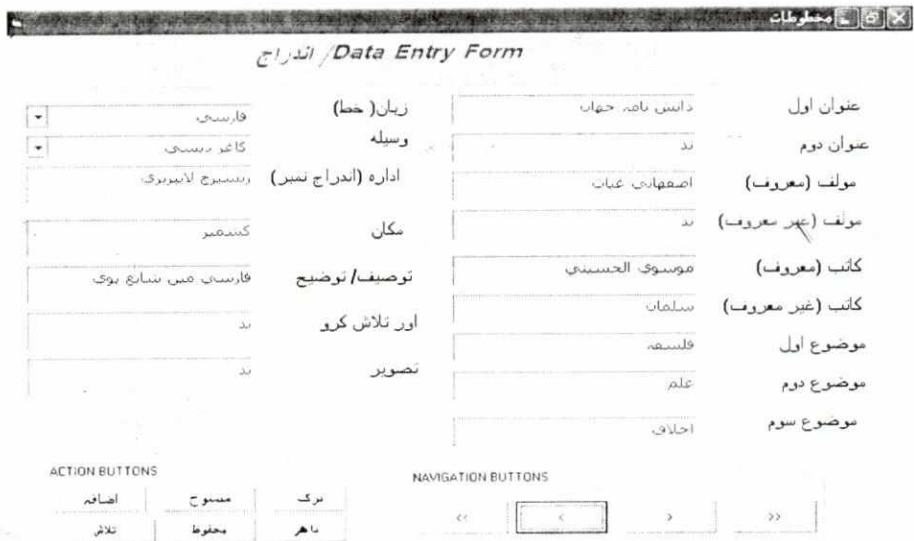 مخطوطات
Data Entry Form/ اندراج
عنوان اول دانش نامہ جهان
عنوان دوم ند
مولف (معروف) اصفهانی غیاث
مولف (غیر معروف) ند
کاتب (معروف) موسوی الحسینی
کاتب (غیر معروف) سلمان
موضوع اول فلسفہ
موضوع دوم علم
موضوع سوم اخلاق
زبان( خط) فارسی
وسیله کاغز دیسی
اداره (اندراج نمبر) ریسرچ لایبریری
مکان کشمیر
توصیف/ توضیح فارسی میں شایع ہوی
اور تلاش کرو ند
تصویر ند
ACTION BUTTONS
اضافہ منسوخ ترک
تلاش محفوظ باهر
NAVIGATION BUTTONS
<< < > >>